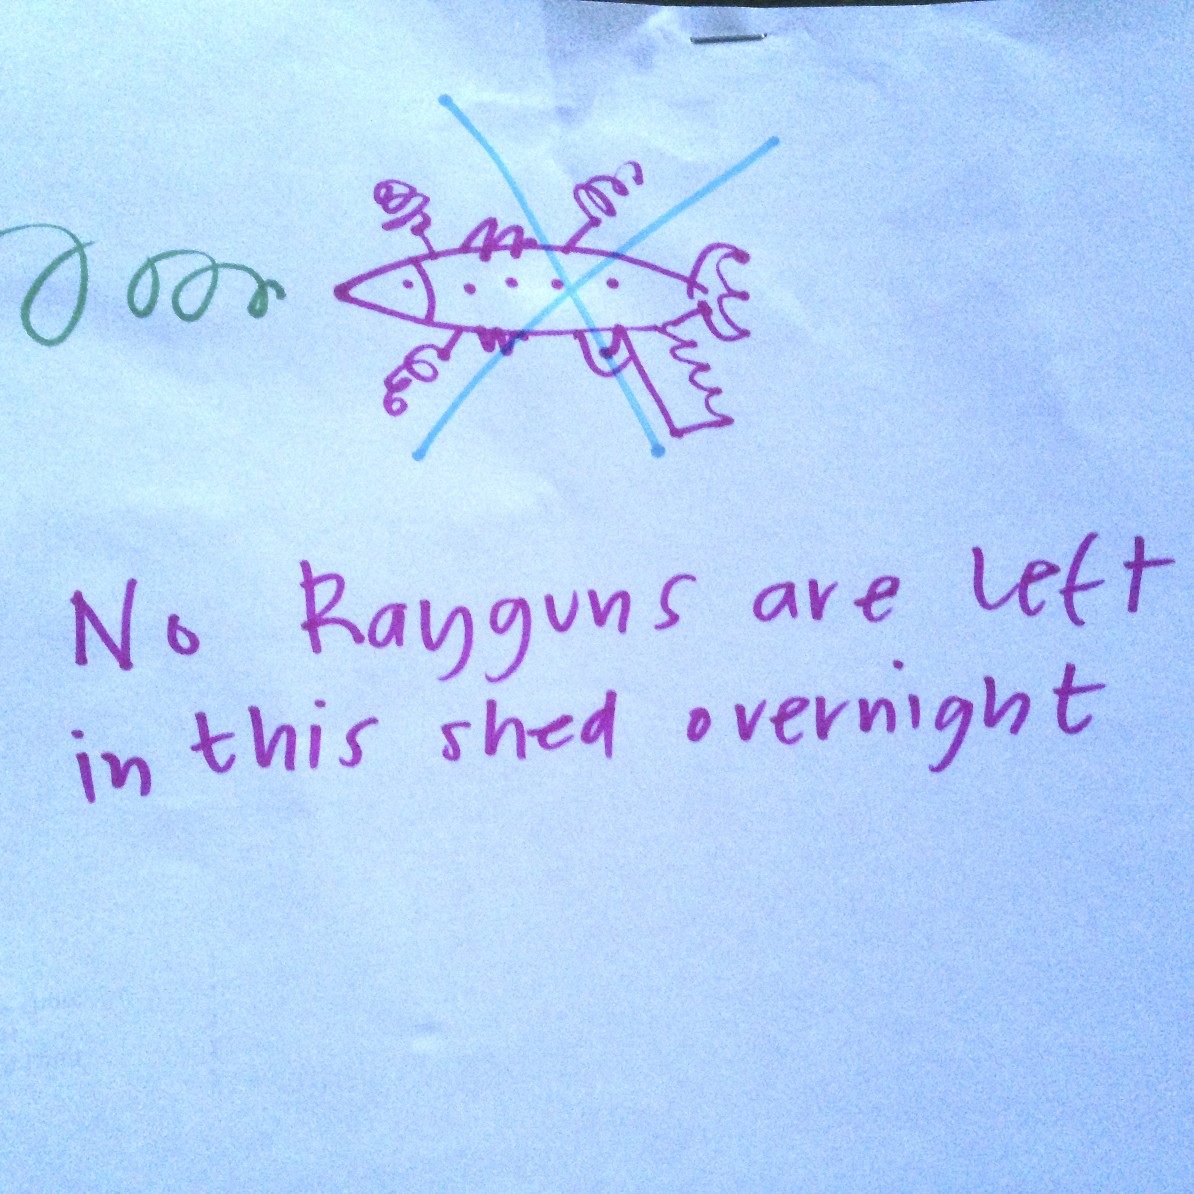 No Rayguns are left
in this shed overnight